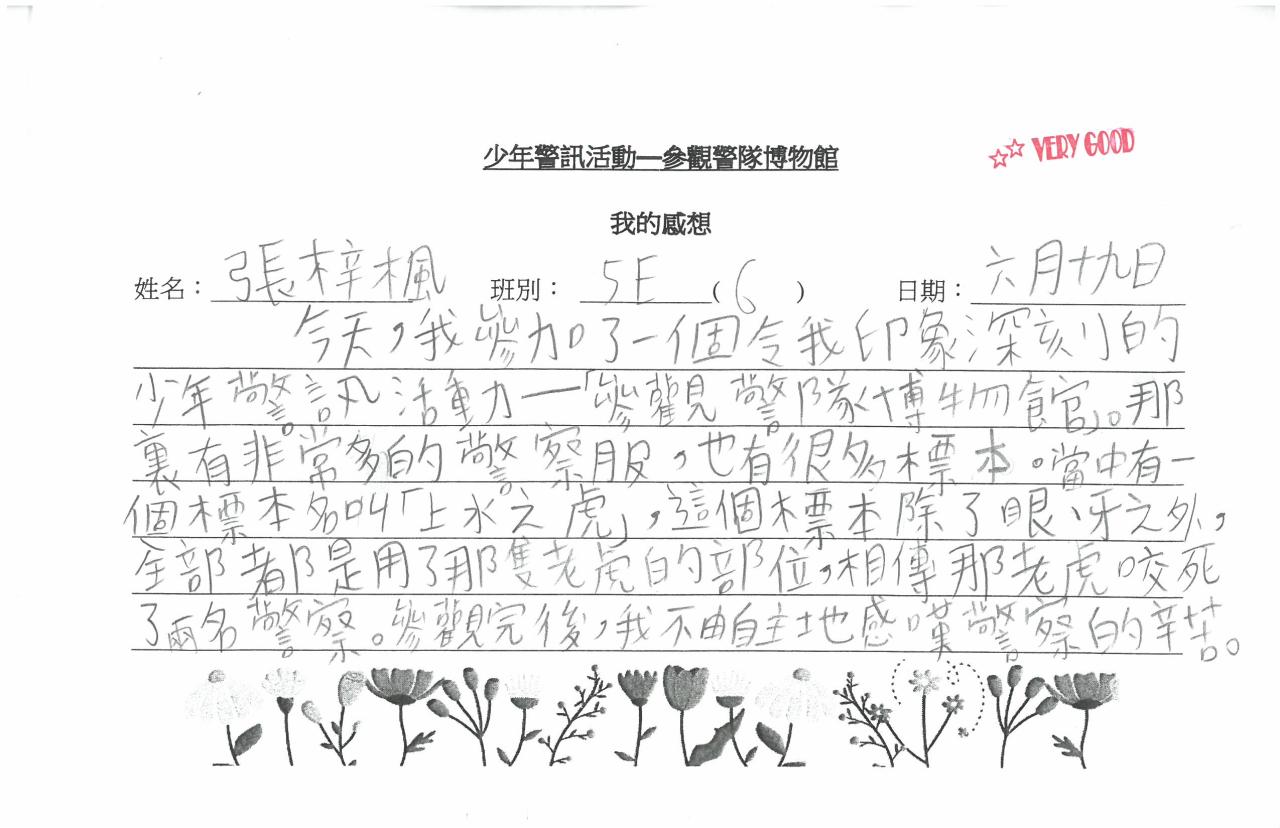 少年警訊活動—參觀警隊博物館
VERY GOOD
我的感想
姓名：張梓楓 班別：5E (6) 日期：六月十九日
今天，我參加了一個令我印象深刻的
少年警訊活動—「參觀警隊博物館」。那
裏有非常多的警察服，也有很多標本。當中有一
個標本名叫「上水之虎」，這個標本除了眼、牙之外，
全部都是用了那隻老虎的部位，相傳那老虎咬死
了兩名警察。參觀完後，我不由自主地感嘆警察的辛苦。